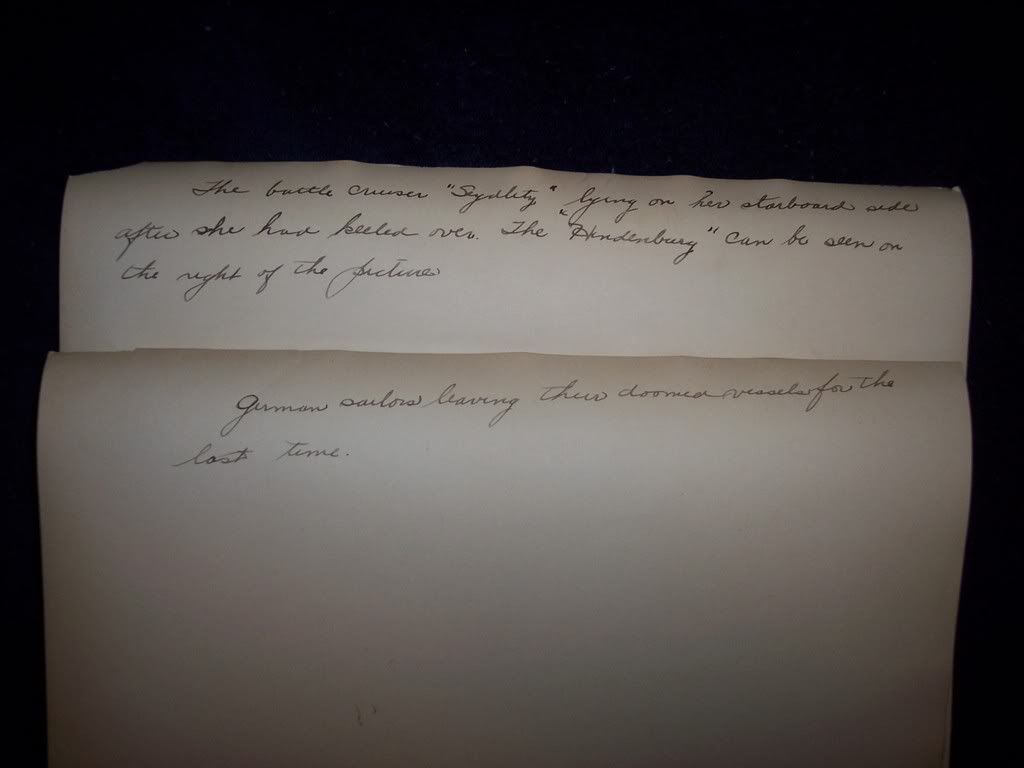 The battle cruiser "Seydlitz" lying on her starboard side
after she had keeled over. The "Hindenburg" can be seen on
the right of the picture
German sailors leaving their doomed vessels for the
last time.